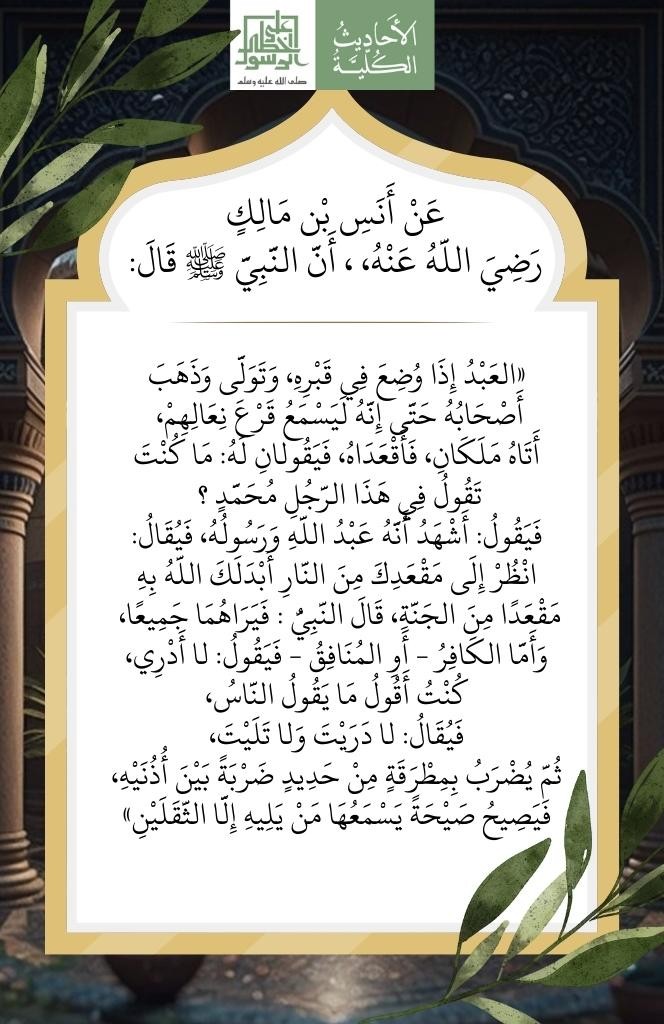 الأَحَادِيثُ
الكُلِّيَّةُ
صلى الله عليه وسلم
عَنْ أَنَسِ بْنِ مَالِكٍ
رَضِيَ اللّهُ عَنْهُ، ، أَنّ النّبِيّ ﷺ قَالَ:
«العَبْدُ إِذَا وُضِعَ فِي قَبْرِهِ، وَتَوَلّى وَذَهَبَ
أَصْحَابُهُ حَتّى إِنّهُ لَيَسْمَعُ قَرْعَ نِعَالِهِمْ،
أَتَاهُ مَلَكَانِ، فَأَقْعَدَاهُ، فَيَقُولانِ لَهُ: مَا كُنْتَ
تَقُولُ فِي هَذَا الرّجُلِ مُحَمّدٍ ؟
فَيَقُولُ: أَشْهَدُ أَنّهُ عَبْدُ اللّهِ وَرَسُولُهُ، فَيُقَالُ:
انْظُرْ إِلَى مَقْعَدِكَ مِنَ النّارِ أَبْدَلَكَ اللّهُ بِهِ
مَقْعَدًا مِنَ الجَنّةِ، قَالَ النّبِيُّ : فَيَرَاهُمَا جَمِيعًا،
وَأَمّا الكَافِرُ - أَوِ المُنَافِقُ - فَيَقُولُ: لا أَدْرِي،
كُنْتُ أَقُولُ مَا يَقُولُ النّاسُ،
فَيُقَالُ: لا دَرَيْتَ وَلا تَلَيْتَ،
ثُمّ يُضْرَبُ بِمِطْرَقَةٍ مِنْ حَدِيدٍ ضَرْبَةً بَيْنَ أُذُنَيْهِ،
فَيَصِيحُ صَيْحَةً يَسْمَعُهَا مَنْ يَلِيهِ إِلّا الثّقَلَيْنِ»